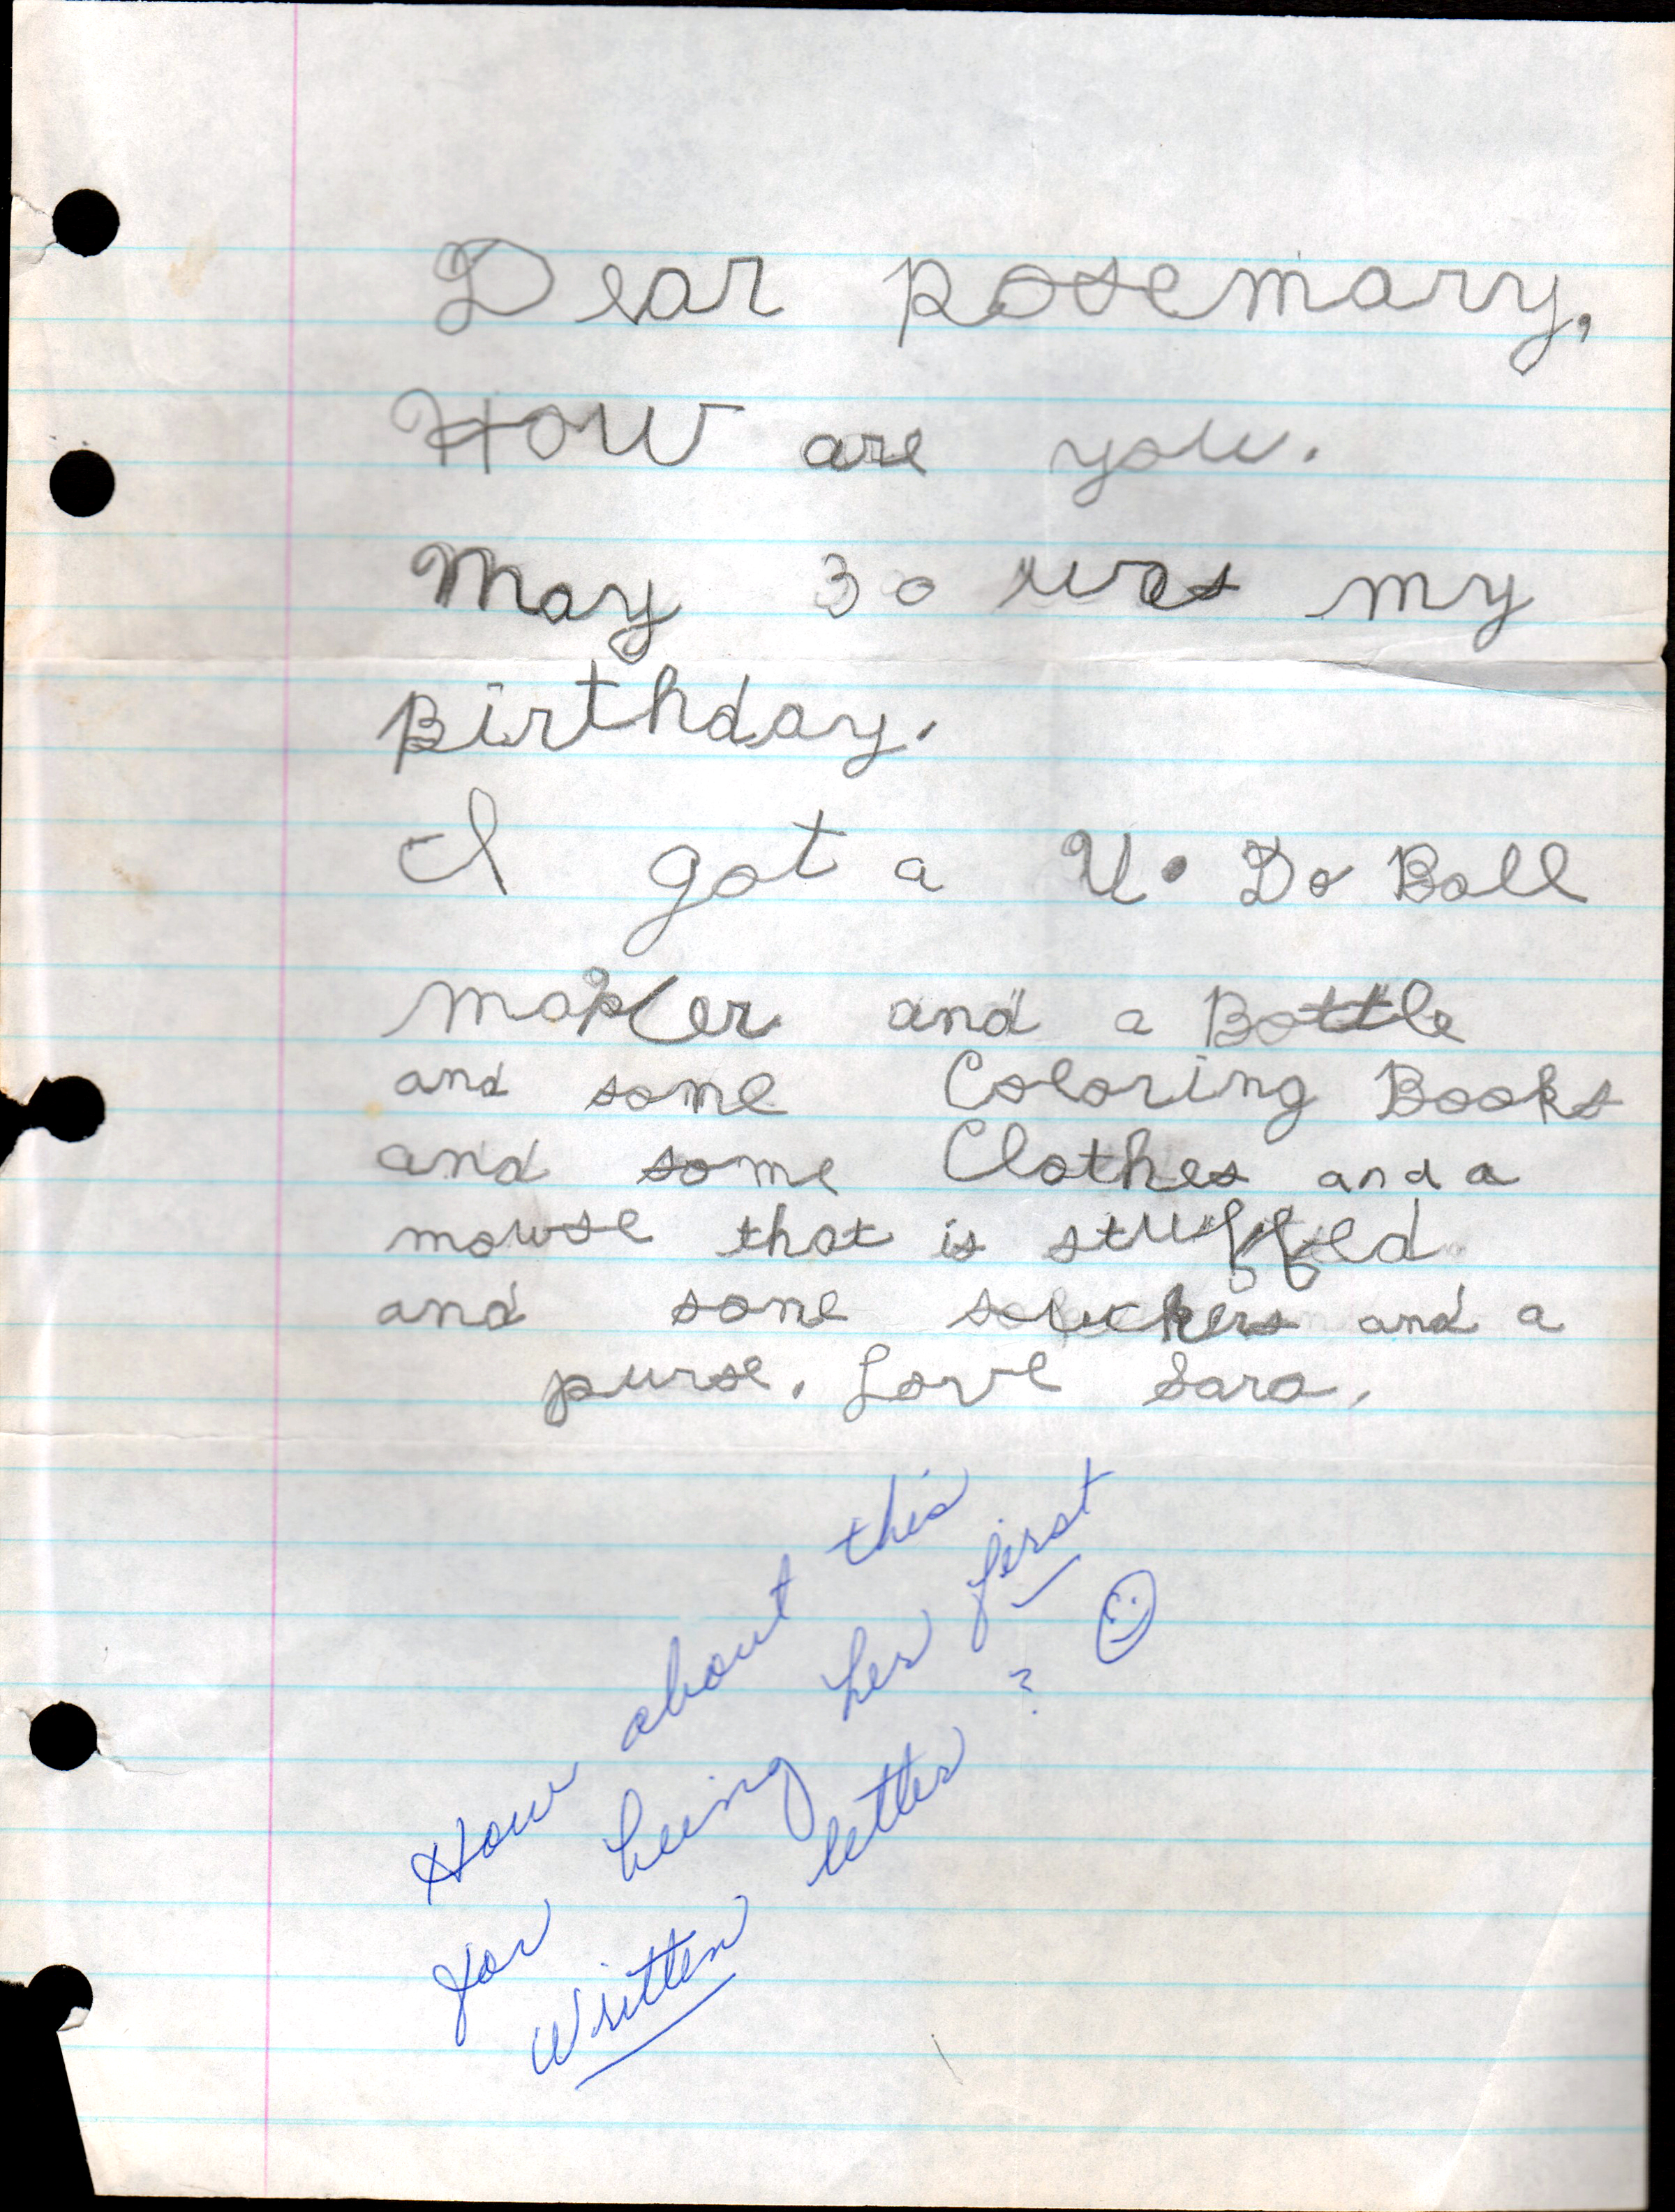 Dear Rosemary,
How are you.
May 30 was my
Birthday.
I got a U. Do Ball
maker and a Bottle
and some Coloring Books
and some Clothes and a
mouse that is stuffed
and some suckers and a
purse. Love Sara.
How about this
for being her first
written letter? ☺